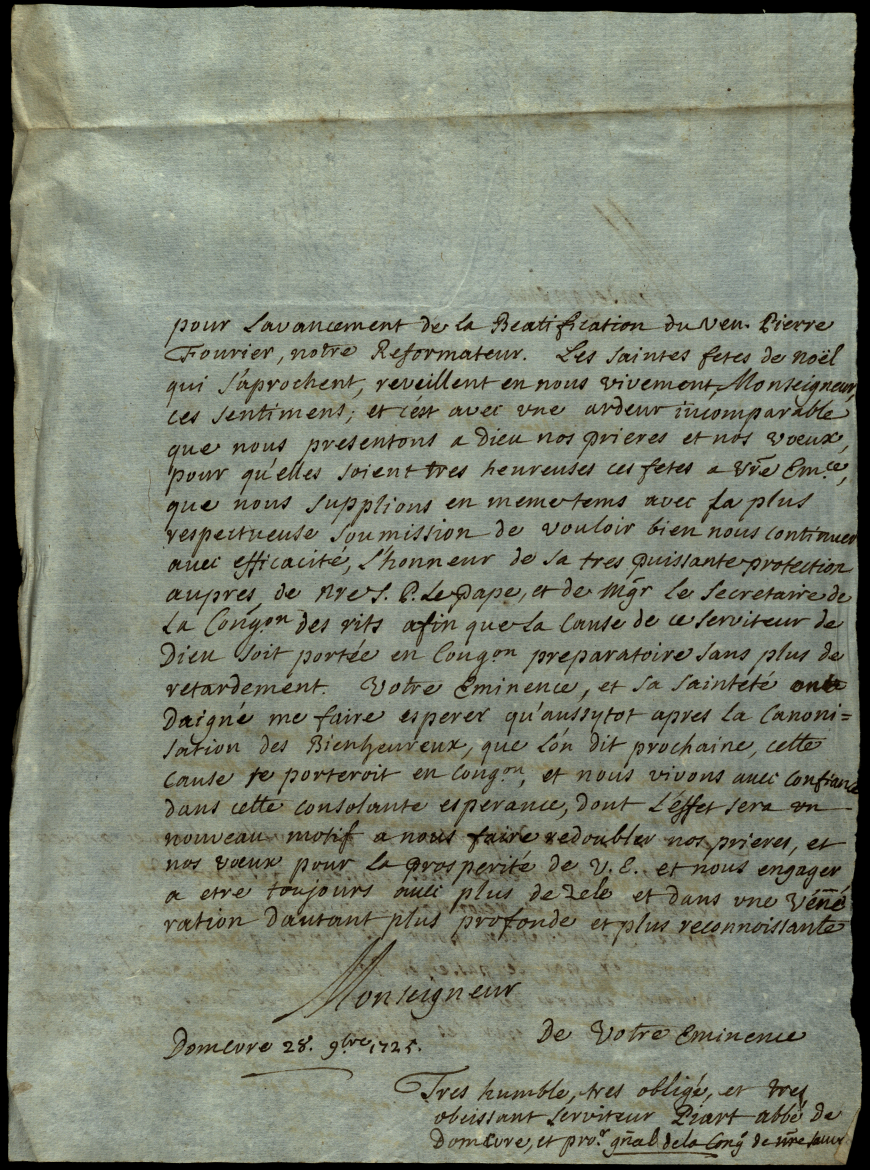 pour L'avancement de la Beatification du Ven. Pierre
Fourier, notre Reformateur. Les saintes fetes de noël
qui s'aprochent, reveillent en nous vivement, Monseigneur,
ces sentimens; et c'est avec vne ardeur incomparable
que nous presentons a Dieu nos prieres et nos voeux,
pour qu'elles soient tres heureuses ces fetes a Vre Em.ce,
que nous supplions en meme tems avec la plus
respectueuse soumission de vouloir bien nous continuer
avec efficacité, L'honneur de sa tres puissante protection
aupres de Nre S. P. Le pape, et de Mgr le Secretaire de
La Congon des rits afin que la Cause de ce serviteur de
Dieu soit portée en Congon preparatoire sans plus de
retardement. Votre Eminence, et sa sainteté ont
Daigné me faire esperer qu'aussytot apres la Canoni=
sation des Bienheureux, que l'on dit prochaine, cette
Cause se porteroit en Congon, et nous vivons avec confiance
dans cette consolante esperance, dont L'effet sera vn
nouveau motif a nous faire redoubler nos prieres, et
nos vœux pour la prosperité de V. E. et nous engager
a etre toujours avec plus de zele et dans vne Véné
ration d'autant plus profonde et plus reconnoissante
Monseigneur
De Votre Eminence
Domevre 28. 9bre 1725.
Tres humble, tres obligé, et tres
obeissant serviteur Piart abbé de
Domevre, et pror. gñal de la Cong de nre sauur